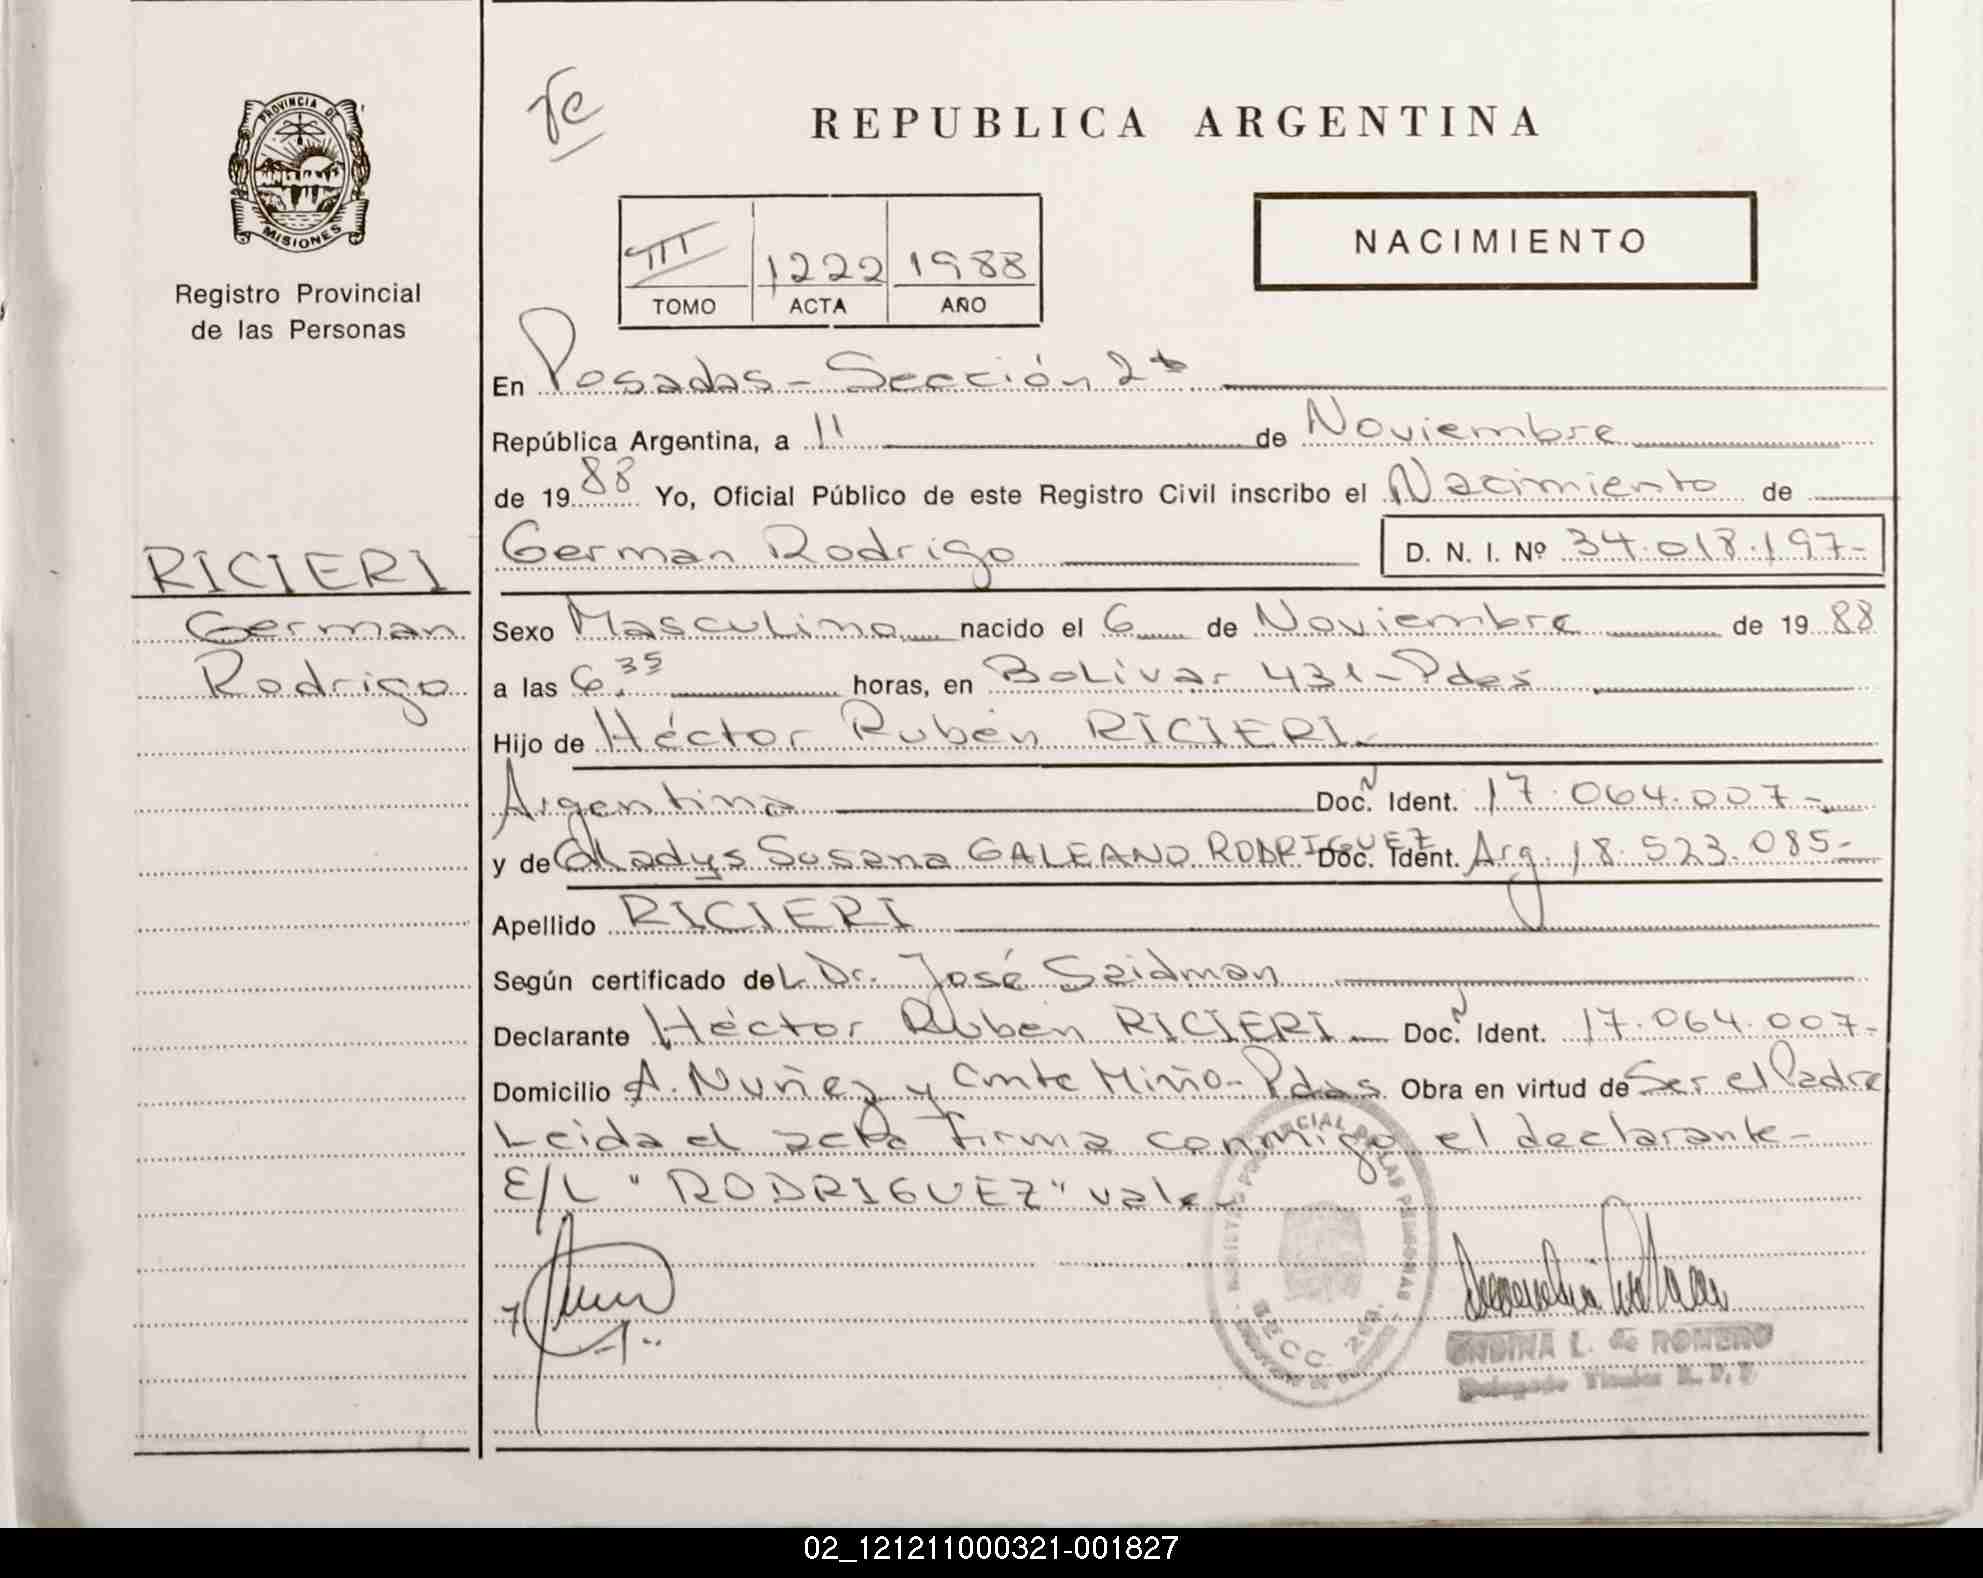 PROVINCIA DE
MISIONES
Registro Provincial
de las Personas
RICIERI
German
Rodrigo
REPUBLICA ARGENTINA
NACIMIENTO
III 1222 1988
TOMO ACTA AÑO
En Posadas - Sección 2ª
República Argentina, a 11 de Noviembre
de 1988 Yo, Oficial Público de este Registro Civil inscribo el Nacimiento de
German Rodrigo D. N. I. Nº 34.018.197-
Sexo Masculino nacido el 6 de Noviembre de 1988
a las 6.35 horas, en Bolivar 431 - Pdas
Hijo de Héctor Rubén RICIERI
Argentina Doc. Ident. 17.064.007-
y de Gladys Susana GALEANO RODRIGUEZ Doc. Ident. Arg. 18.523.085-
Apellido RICIERI
Según certificado del Dr. José Seidman
Declarante Héctor Rubén RICIERI Doc. Ident. 17.064.007-
Domicilio A. Nuñez y Cmte Miño - Pdas Obra en virtud de Ser el Padre
Leida el acta firma conmigo el declarante-
E/L "RODRIGUEZ" vale-
SECC. 2da.
ONDINA L. de ROMERO
Delegado Titular R. P. P
02_121211000321-001827